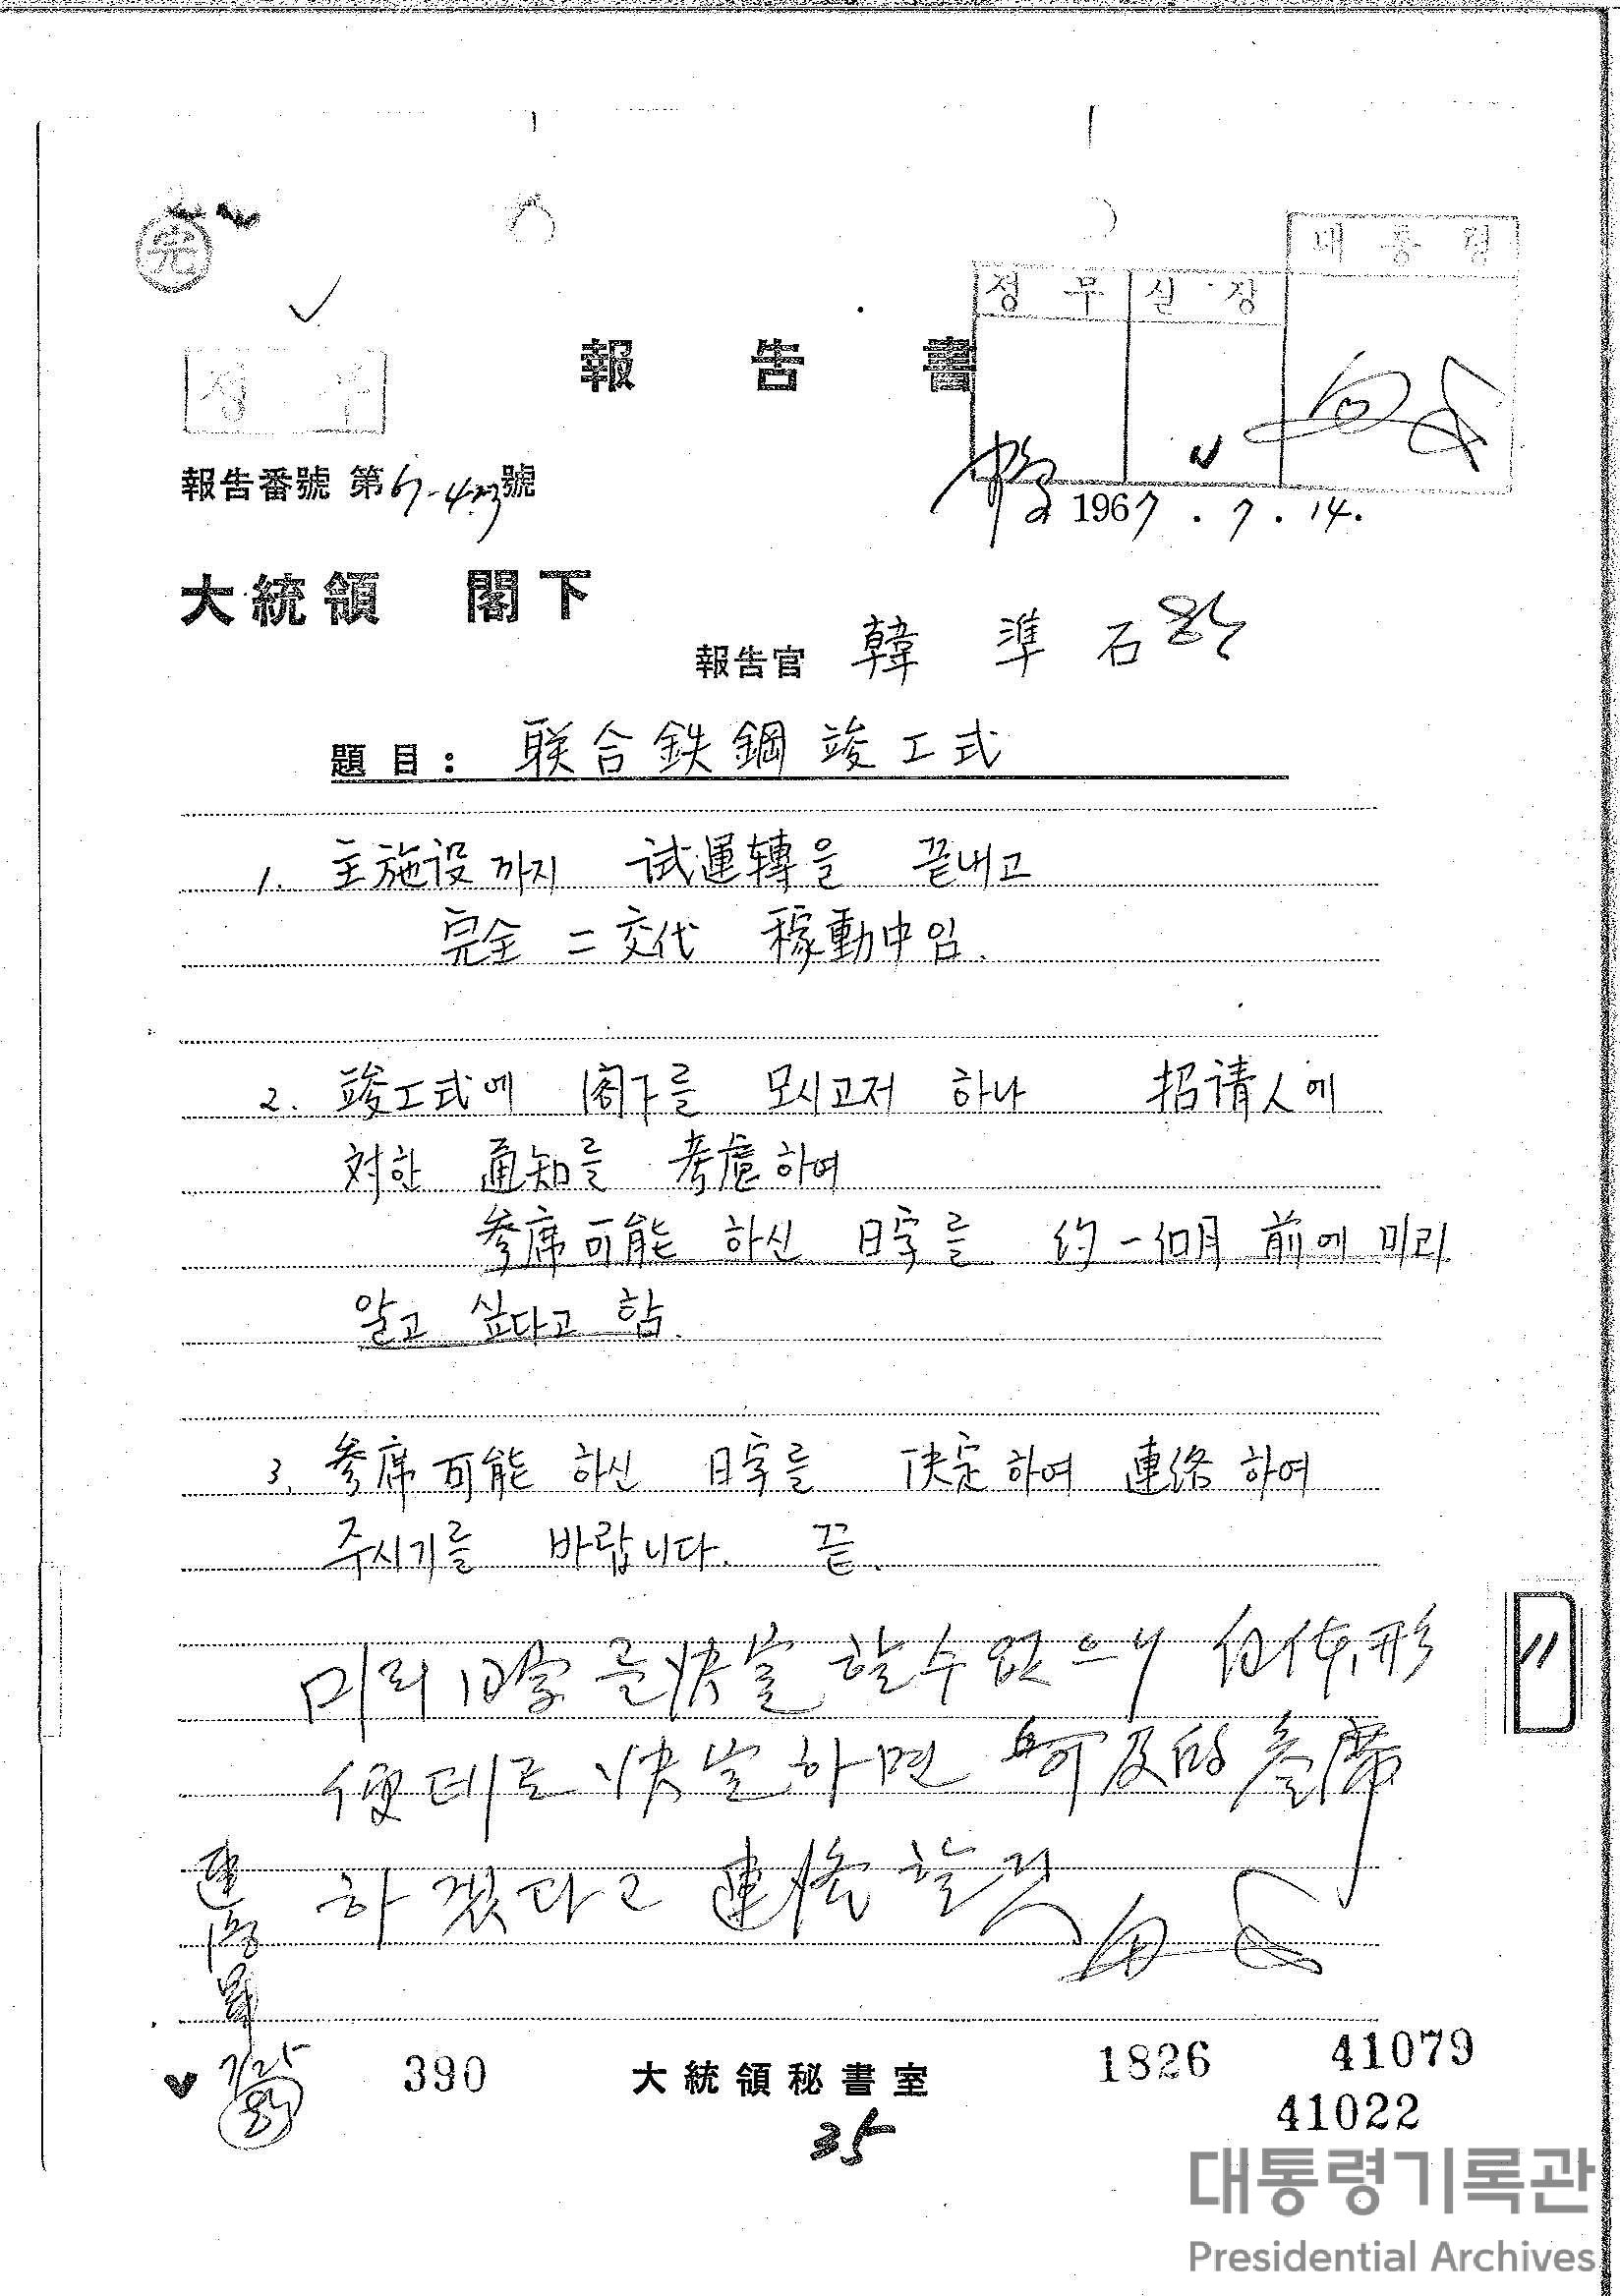 完
대통령
정무 실장
정무
報告書
報告番號 第67-423號
1967. 7. 14.
大統領 閣下
報告官 韓準石
題目: 联合鉄鋼 竣工式
1. 主施設까지 試運轉을 끝내고
完全 二交代 稼動中임.
2. 竣工式에 閣下를 모시고저 하나 招請人에
対한 通知를 考慮하여
参席可能 하신 日字를 約一個月 前에 미리
알고 싶다고 함.
3. 参席可能 하신 日字를 决定하여 連絡하여
주시기를 바랍니다. 끝.
미리 日字를 決定할 수 없으니
便데로 決定하면 可及的 参席
하겠다고 連絡할 것
7/25
390 大統領秘書室 1826 41079
41022
35
대통령기록관
Presidential Archives